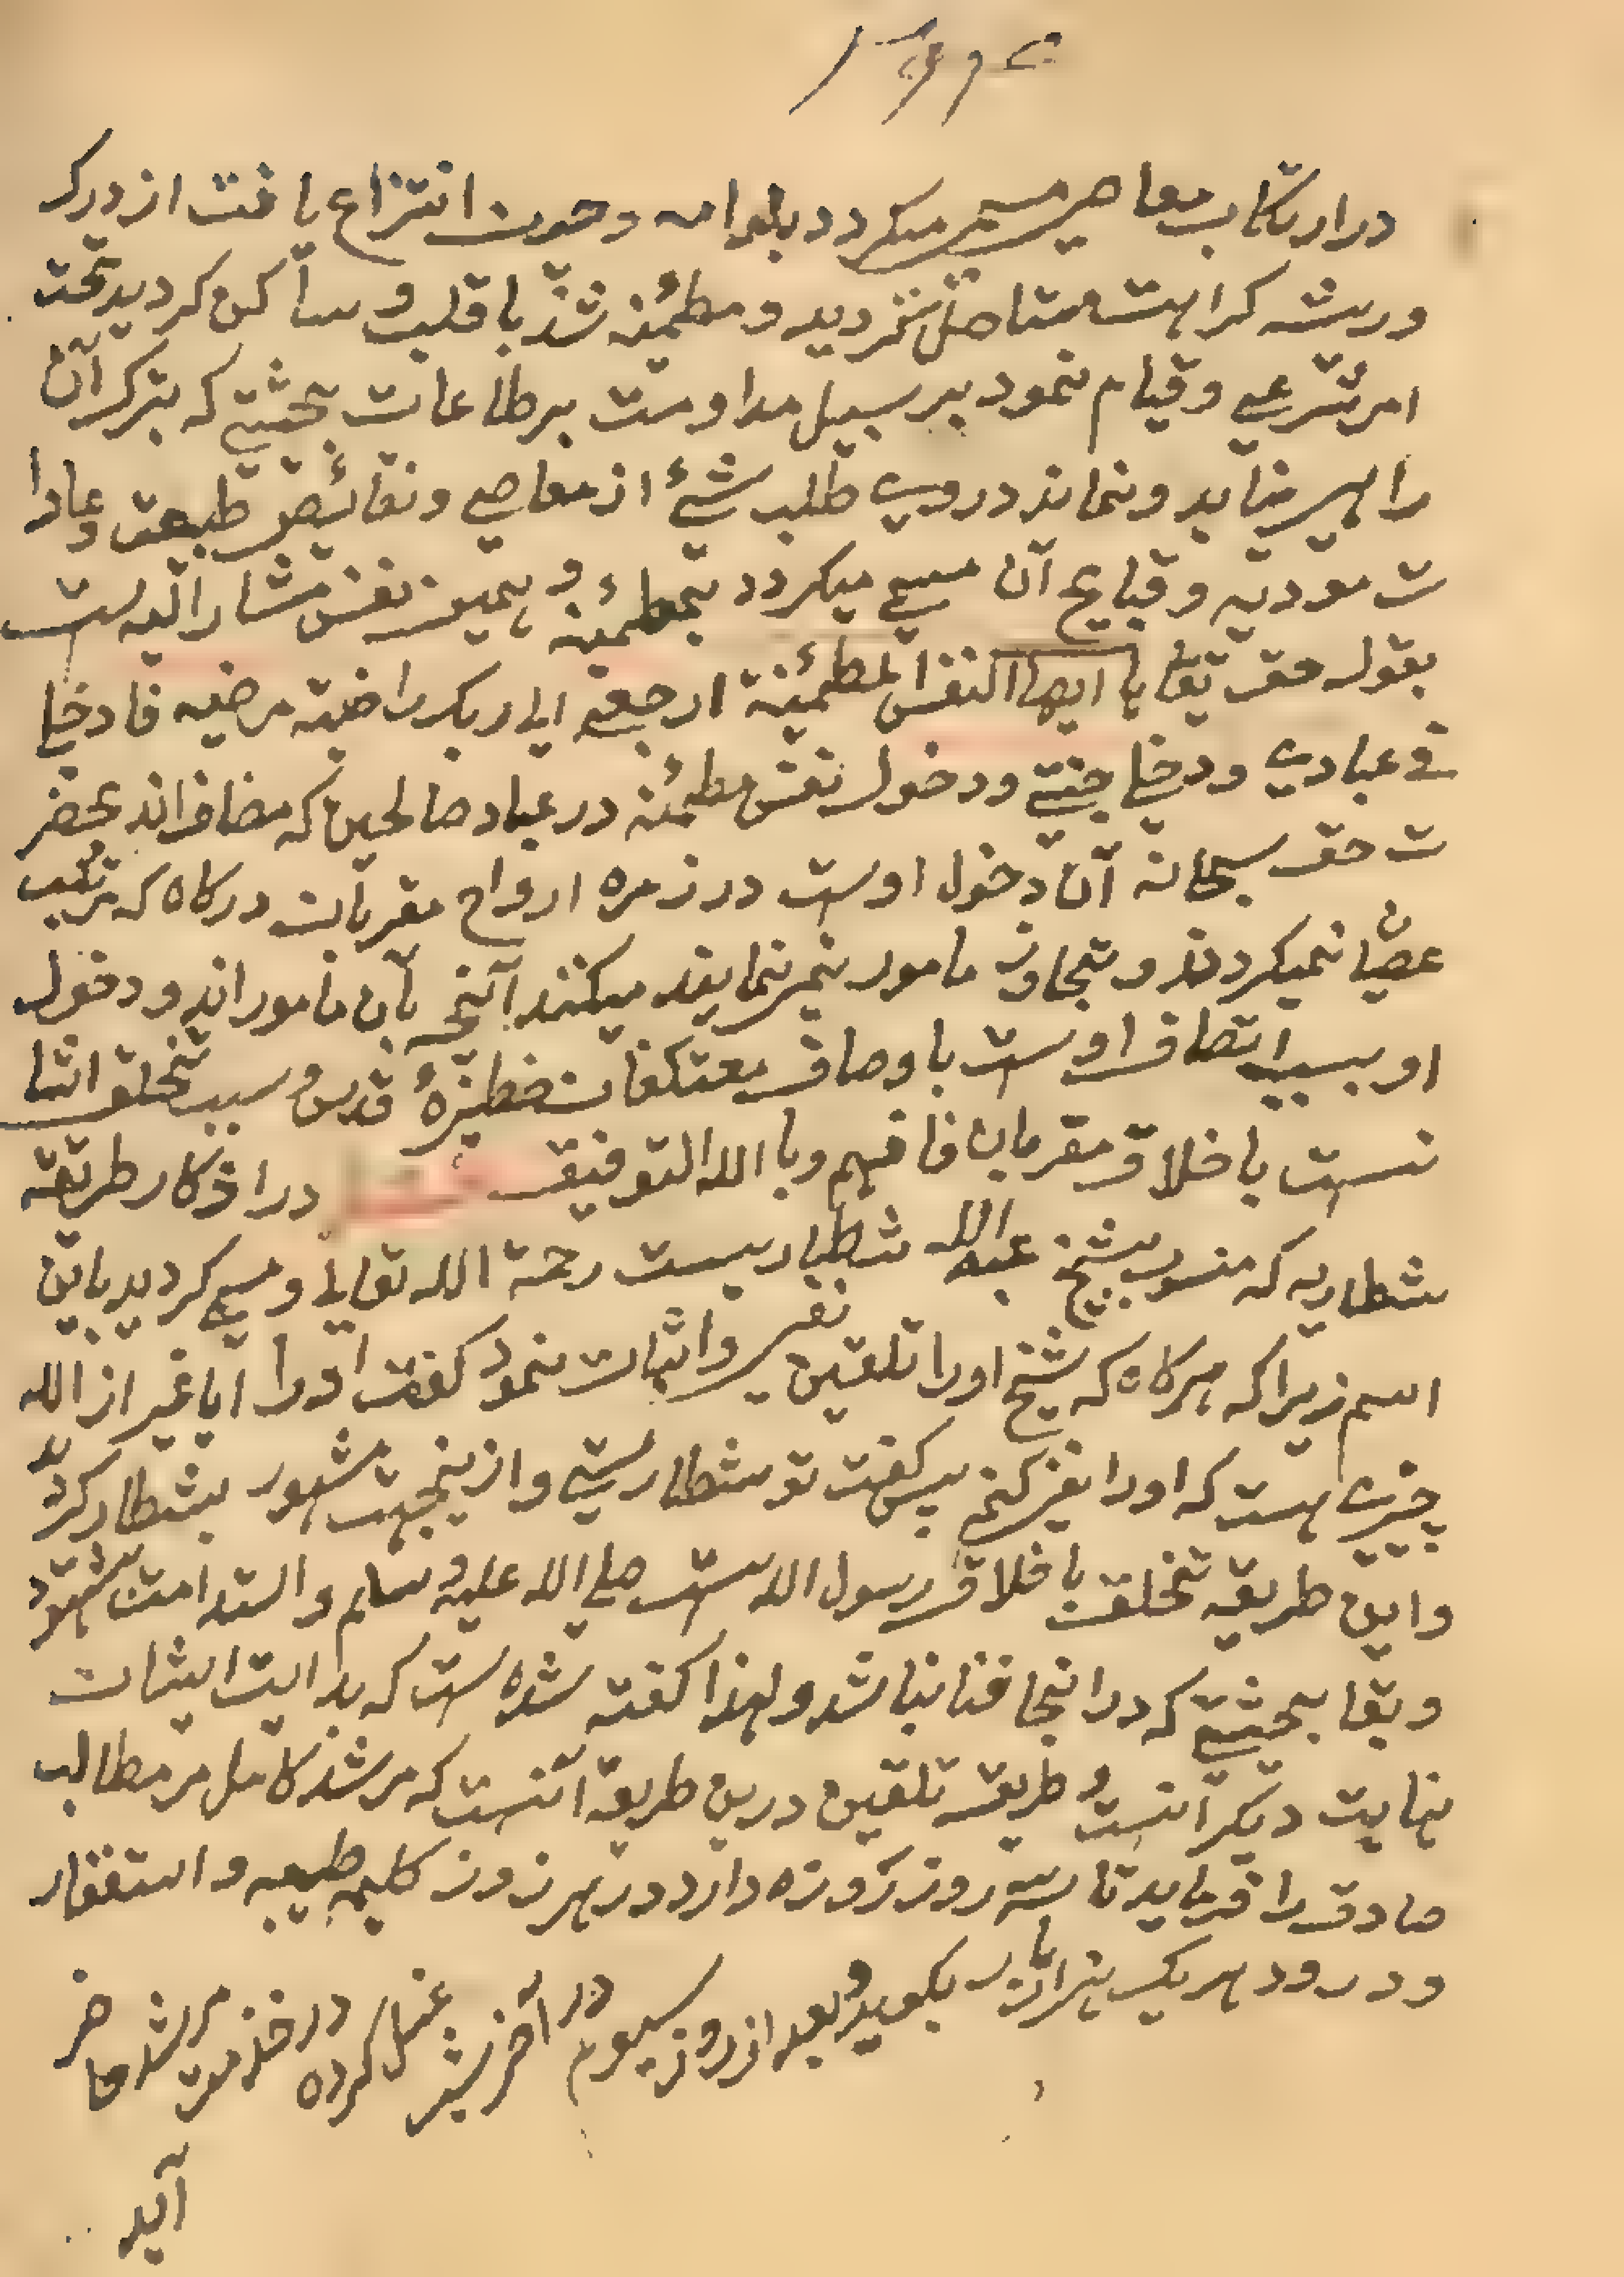 در ارتکاب معاصی مسمی میکردد بلوامه و چون انتزاع یافت از درک
وریشه کراهت متاصل نکردید و مطمئنه شد با قلب و ساکن کردید تحت
امر شرعی و قیام نمود بر سبیل مداومت بر طاعات بحیثیتی که بترک آن
راهی نیابد و نماند در وی طلب شیء از معاصی و نقائص طبیعت و عادا
ت مودیه و قبایح آن مسمی میکردد بمطمئنه و همین نفس مشار الیه ست
بقول حق تعا یا ایها النفس المطمئنة ارجعی الی ربک راضیة مرضیه فادخلی
فی عبادی ودخلی جنتی ودخول نفس مطمئنه در عباد صالحین که مضاف اند بحضر
ت حق سبحانه آن دخول اوست در زمره ارواح مقربان درکاه که مرتکب
عصیان نمیکردند و تجاوز مامور نمی نمایند میکنند آنچه بآن مامور اند و دخول
او بسبب اتصاف اوست باوصاف معتکفان خطیزهٔ قدس و سبب تخلق انسا
نست باخلاق مقربان فافهم وبا الله التوفیق فصل در اذکار طریقه
شطاریه که منسوب بشیخ عبد الله شطاریست رحمة الله تعالی و مسمی کردید باین
اسم زیرا که هرکاه که شیخ اورا تلقین نفی واثبات نمود کفت اورا ایا غیر از الله
چیزی هست که اورا نفی کنم پس کفت تو شطار هستی و ازینجهت مشهور بشطار کردید
واین طریقه تخلق باخلاق رسول الله ست صلی الله علیه وسلم و استدامت شهود
وبقا بحیثیتی که در انجا فنا نباشد ولهذا کفته شده ست که بدایت ایشان
نهایت دیکر آنست و طریقه تلقین درین طریقه آنست که مرشد کامل مر مطالب
صادق را فرماید تا سه روز روزه دارد در هر روز کلیمه طیبه و استغفار
ودرود هریک هزار بار بکوید و بعد از روز سیوم در آخر شب غسل کرده در خدمت مرشد حاضر
آید